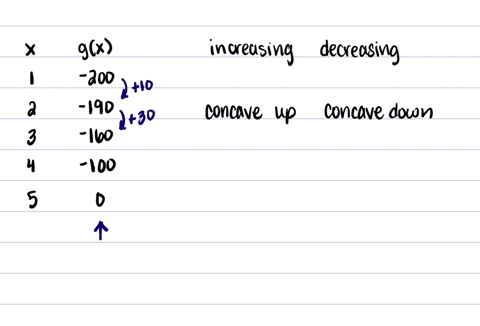 x g(x) increasing decreasing
1 -200
+10
2 -190 concave up concave down
+30
3 -160
4 -100
5 0